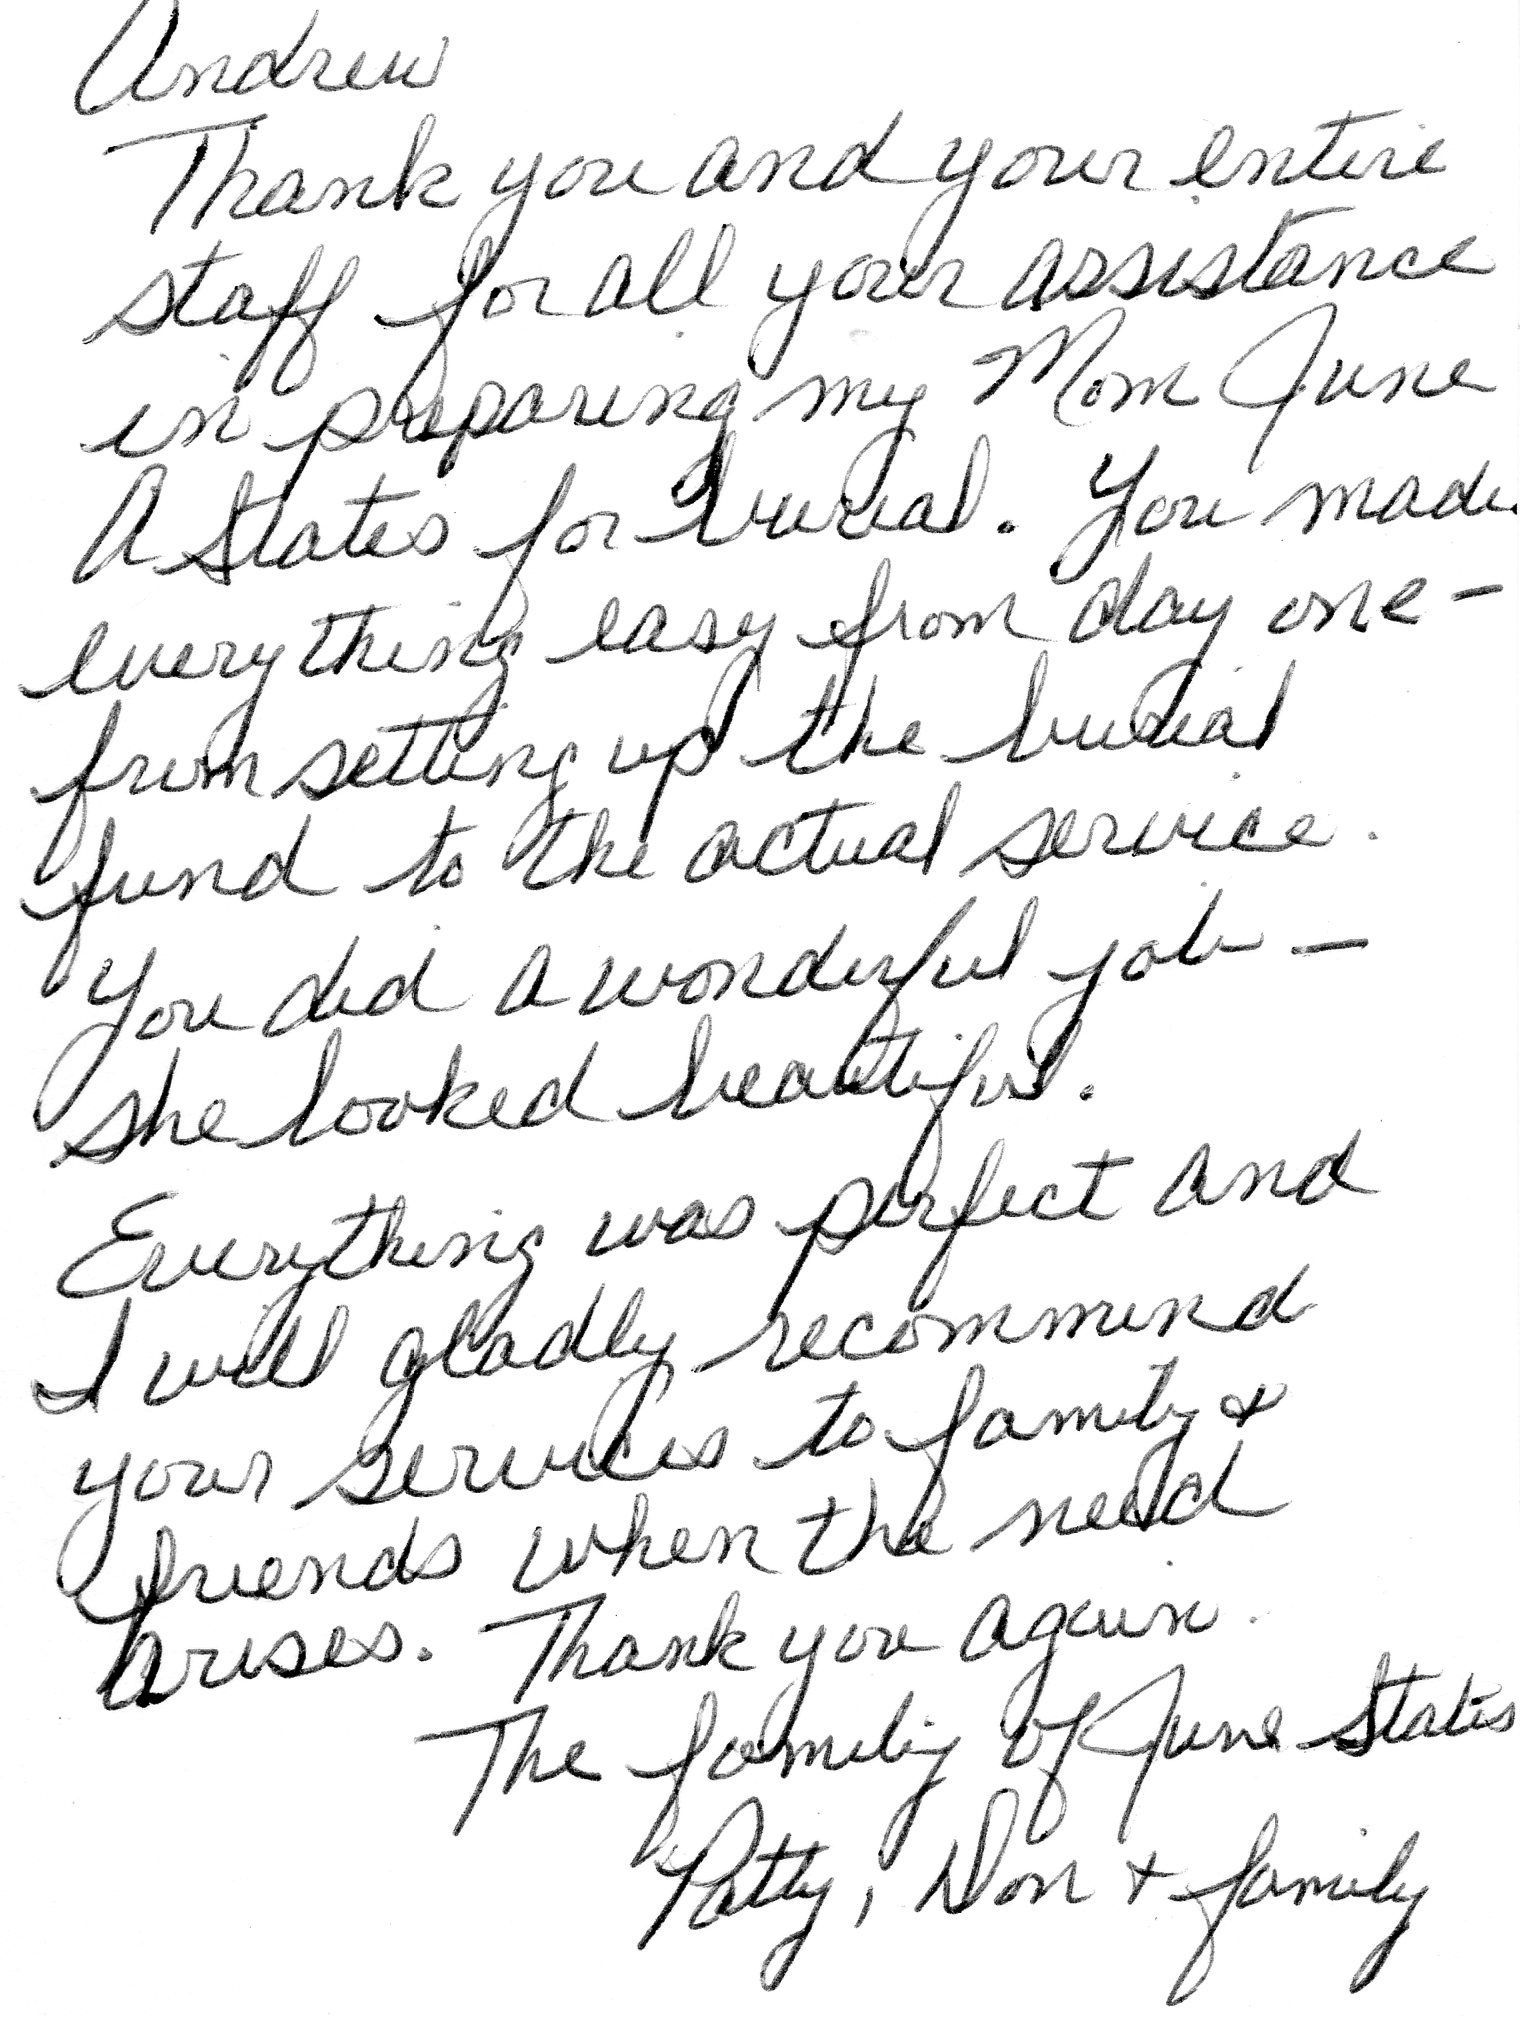 Andrew
Thank you and your entire
staff for all your assistance
in preparing my Mom June
A States for burial. You made
everything easy from day one-
from setting up the burial
fund to the actual service.
You did a wonderful job-
she looked beautiful.
Everything was perfect and
I will gladly recommend
your services to family &
friends when the need
arises. Thank you again.
The family of June States
Patty, Don + family